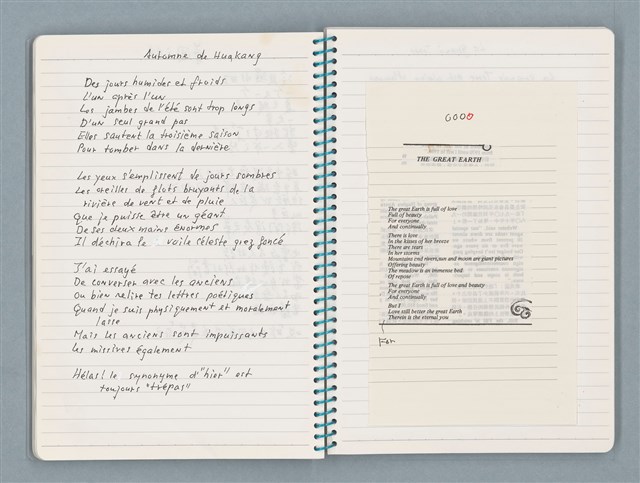 Automne de Huakang
Des jours humides et froids
L'un après l'un
Les jambes de l'été sont trop longs
D'un seul grand pas
Elles sautent la troisième saison
Pour tomber dans la dernière
Les yeux s'emplissent de jours sombres
Les oreilles de flots bruyants de la
rivière de vent et de pluie
Que je puisse être un géant
De ses deux mains énormes
Il déchira le voile céleste grez foncé
J'ai essayé
De converser avec les anciens
Ou bien relire tes lettres poétiques
Quand je suis physiquement et moralement
lasse
Mais les anciens sont impuissants
Les missives également
Hélas! le synonyme d'"hier" est
toujours "trépas"
0000
THE GREAT EARTH
The great Earth is full of love
Full of beauty
For everyone
And continually
There is love
In the kisses of her breeze
There are stars
In her storms
Mountains and rivers, sun and moon are giant pictures
Offering beauty
The meadow is an immense bed
Of repose
The great Earth is full of love and beauty
For everyone
And continually
But I
Love still better the great Earth
Therein is the eternal you
For